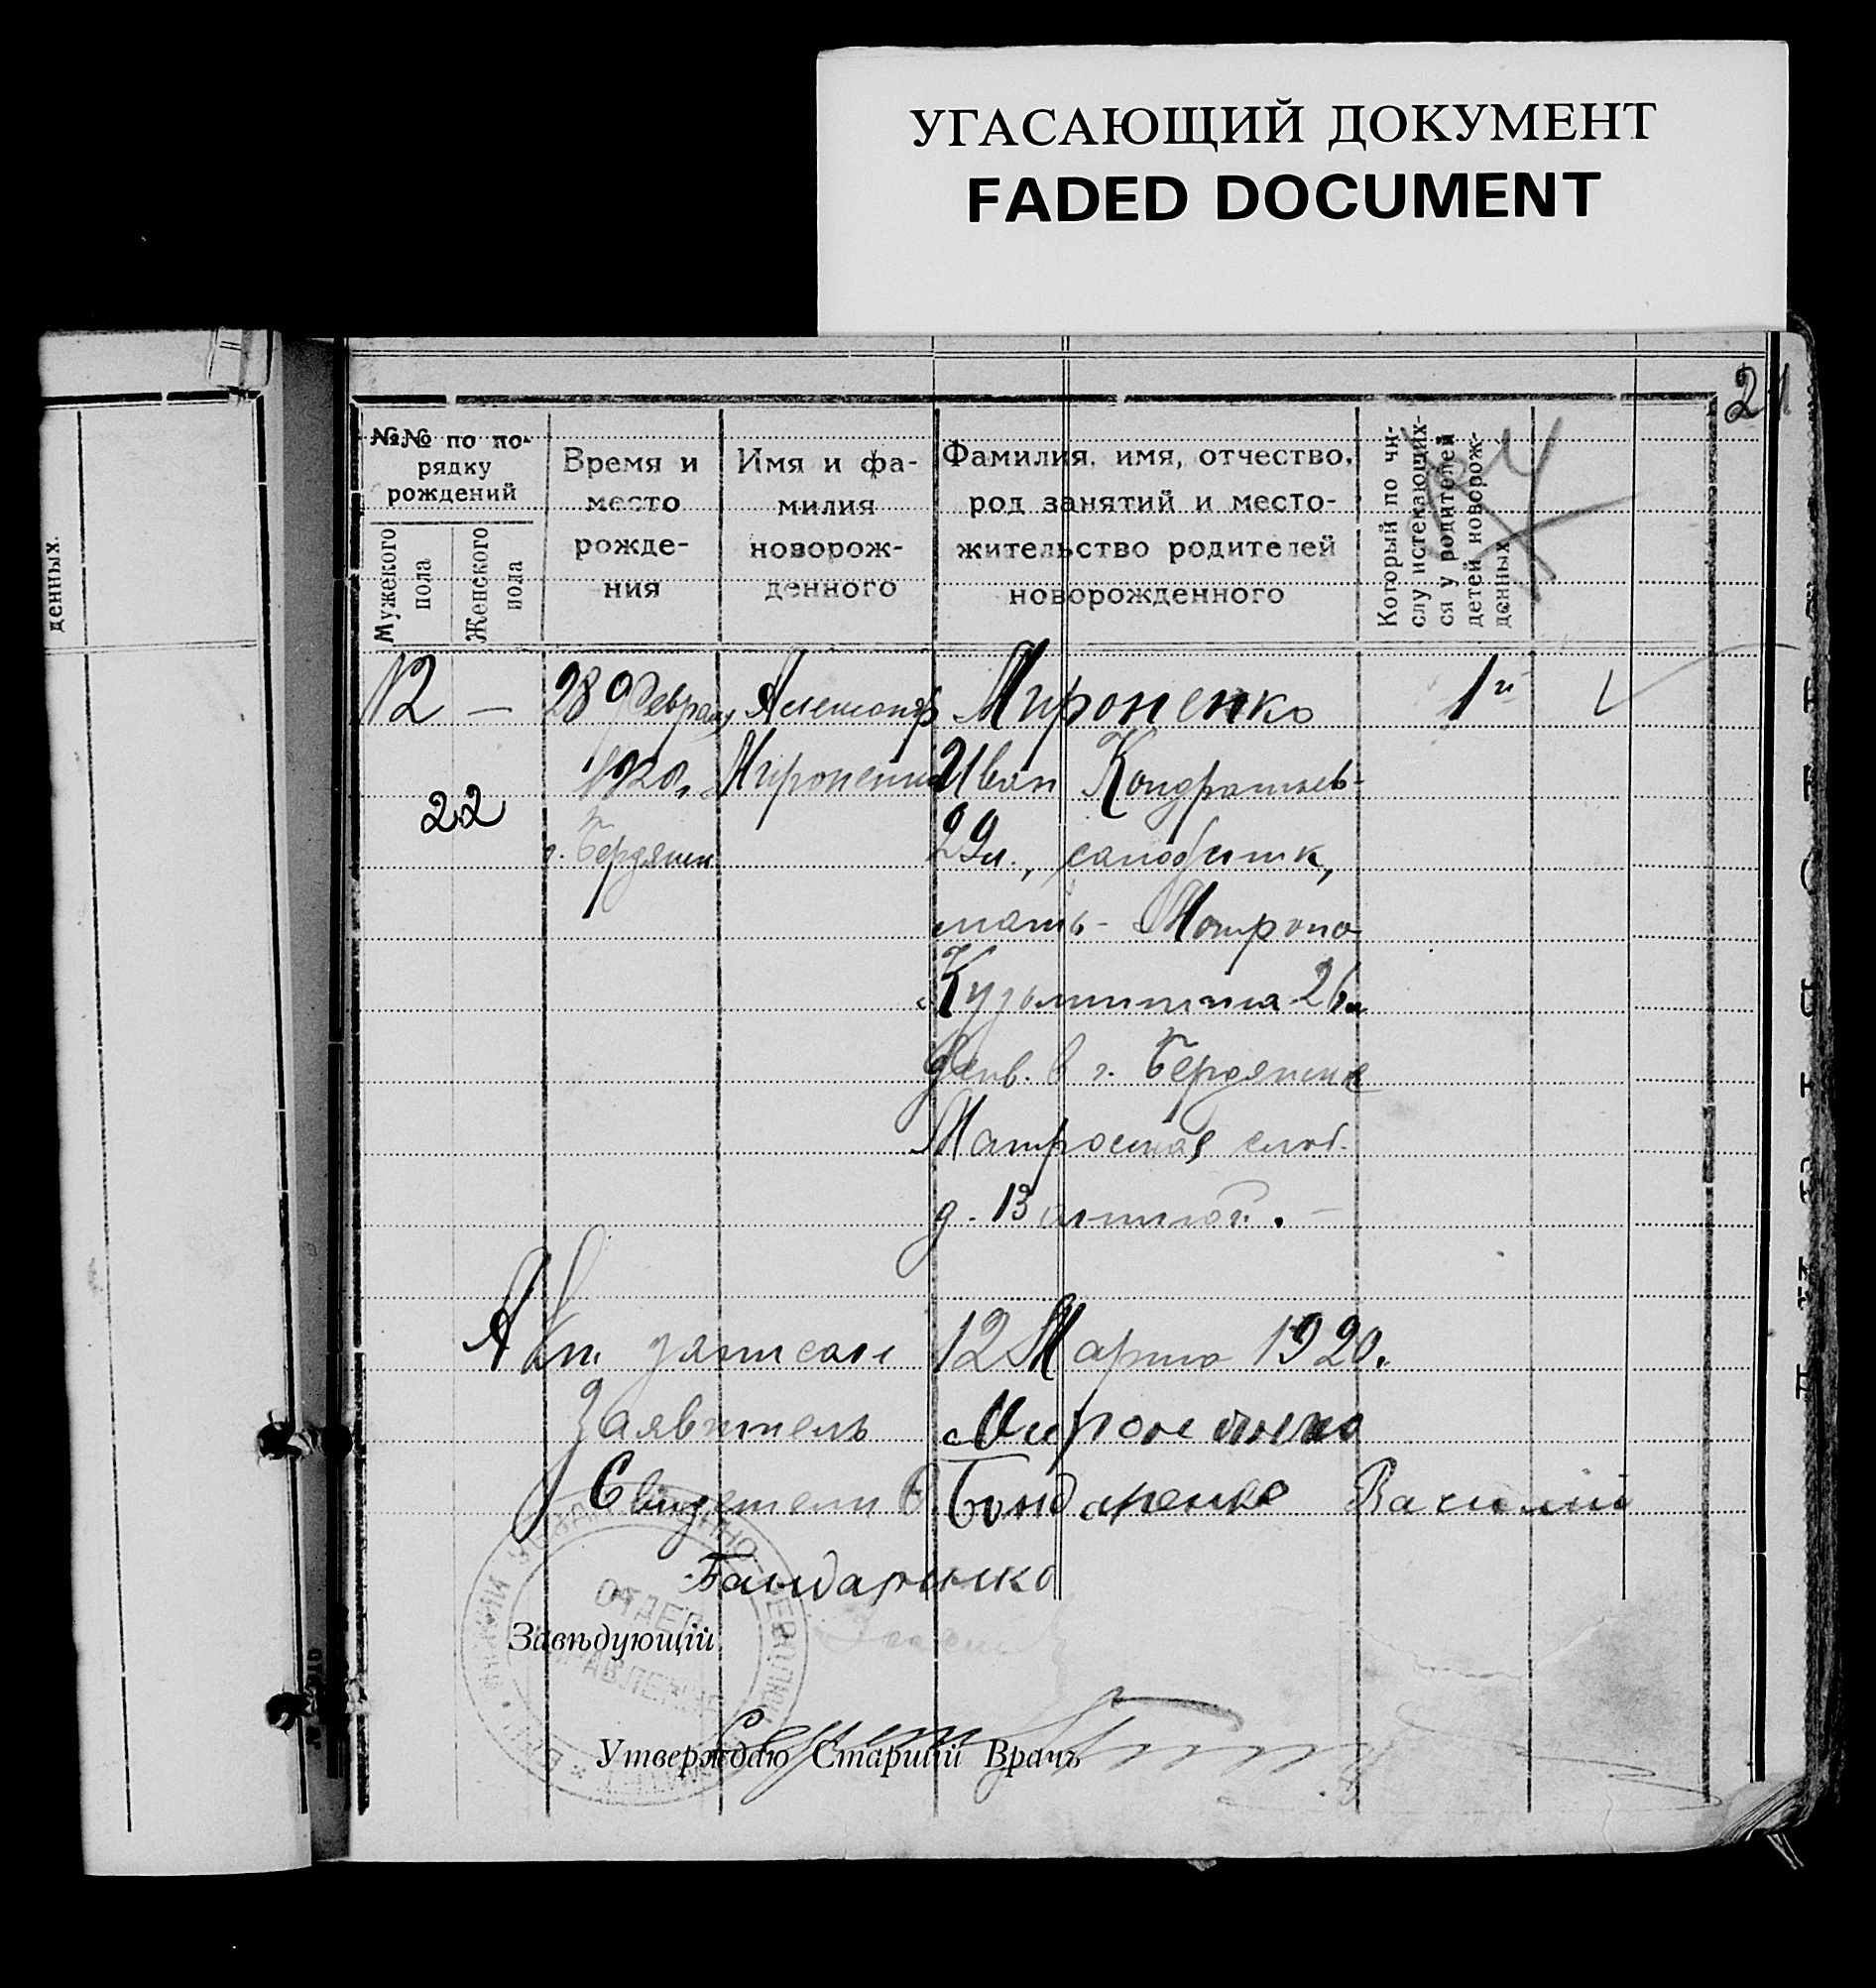 УГАСАЮЩИЙ ДОКУМЕНТ
FADED DOCUMENT
21
денных.
№№ по по-
рядку
рождений
Мужского
пола
Женского
пола
Время и
место
рожде-
ния
Имя и фа-
милия
новорож-
денного
Фамилия, имя, отчество,
род занятий и место-
жительство родителей
новорожденного
Который по чи-
слу истекающих-
ся у родителей
детей новорож-
денных
12 — 28 Февраля Александр Мироненко 1й
1920г. Мироненко Иван Кондратьев-
22
г. Бердянск 29л.,
мать - Матрона
Кузьминична 26л
в г. Бердянске
Матросская слоб.
д.
Акт записан 12 Марта 1920.
Заявитель Мироненко
Свидетели Бондаренко Василий
Бандаренко
ОТДЕЛ
УПРАВЛЕНИЯ
Завѣдующій
Утверждаю Старшій Врачъ